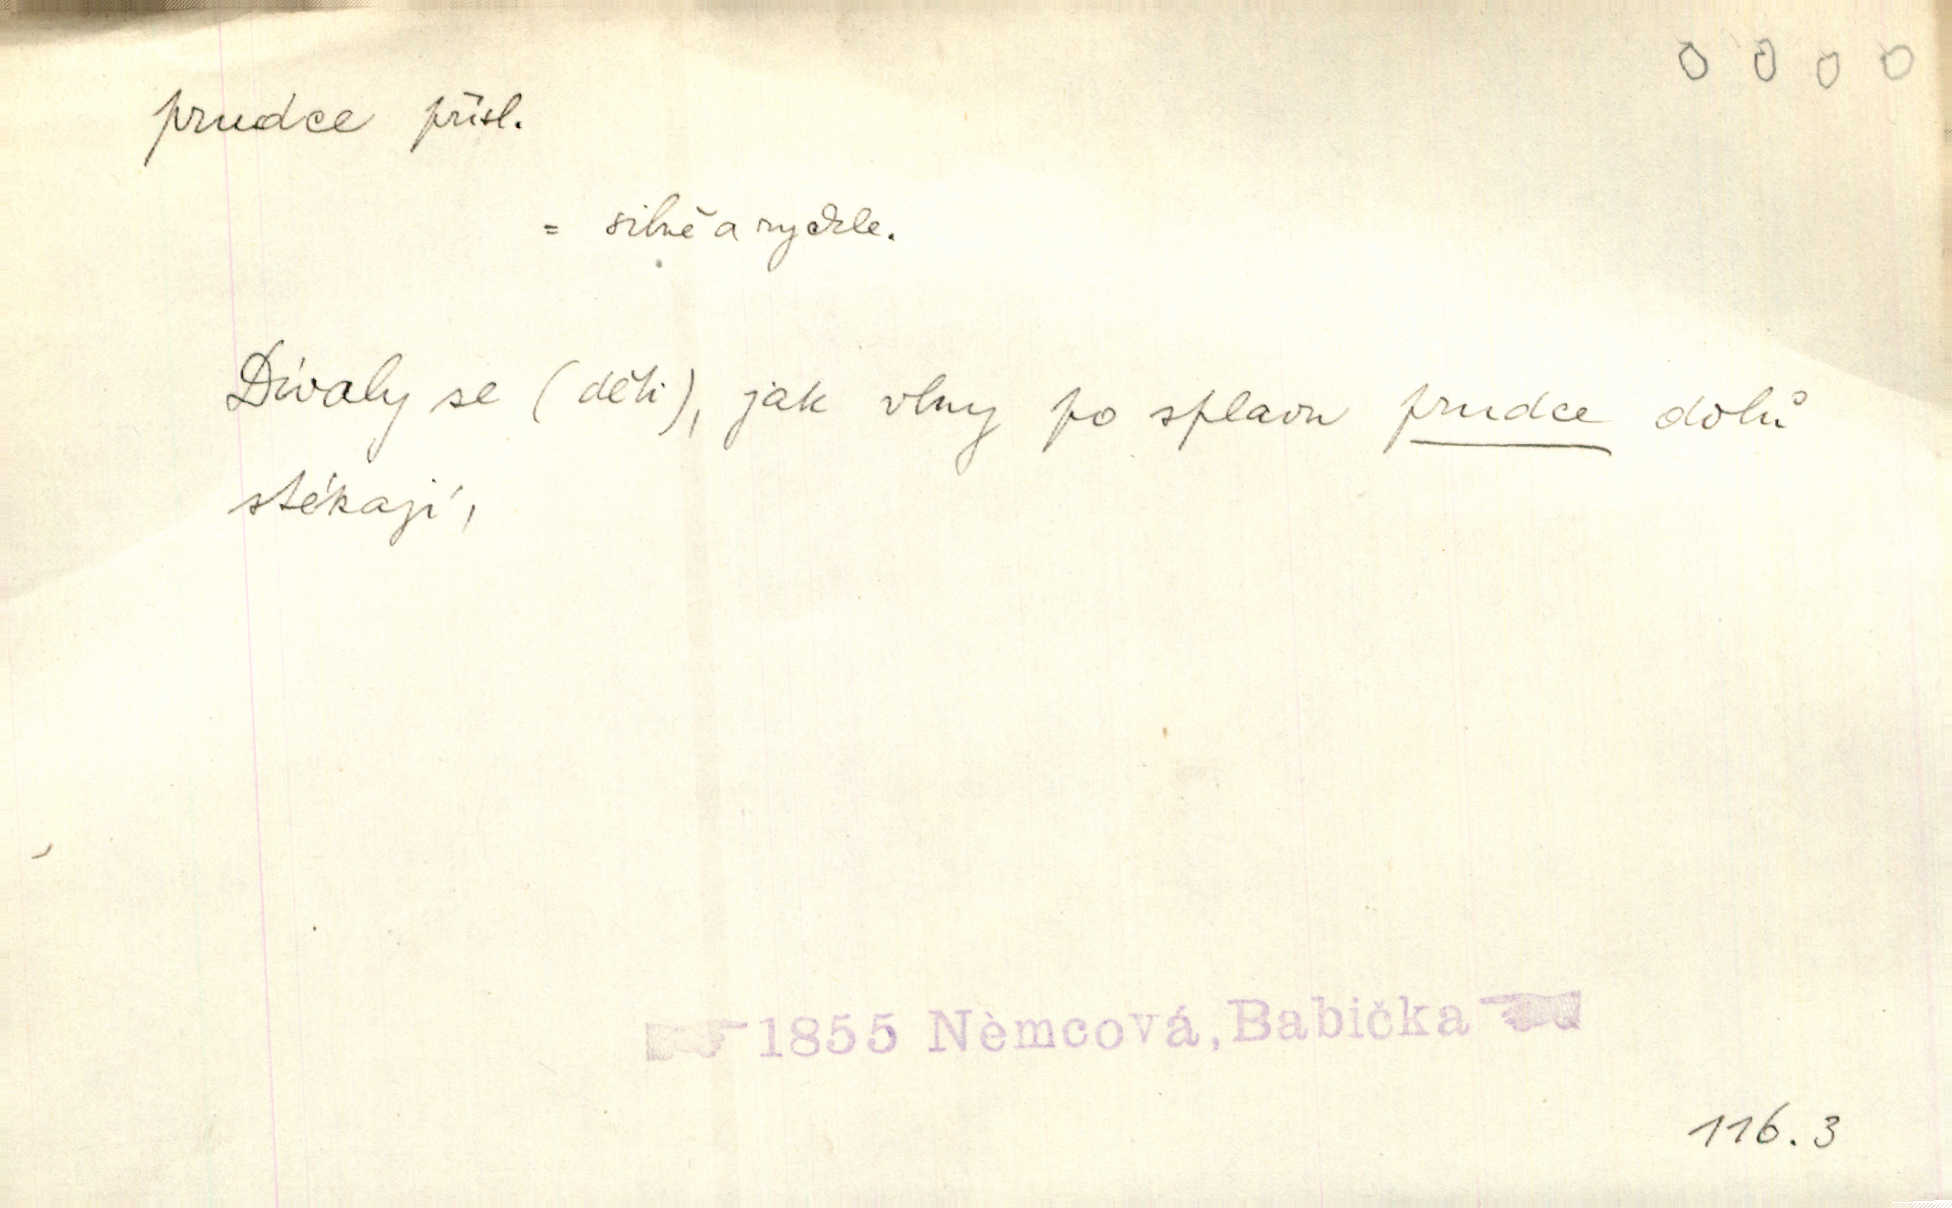 0 0 0 0
prudce přísl.
= silně a rychle.
Dívaly se (děti), jak vlny po splavu prudce dolů
stékají,
1855 Nèmcová, Babička
116.3